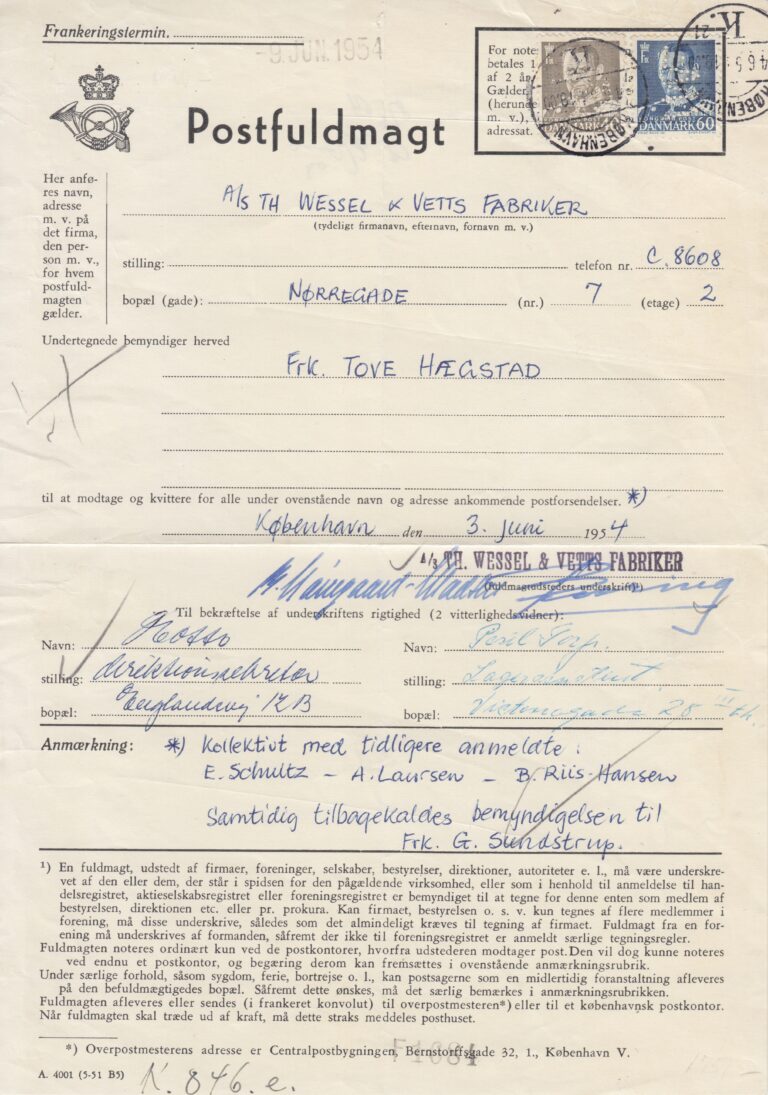 Frankeringstermin.
-9. JUN. 1954
For note
betales 1
af 2 år
Gælder
(herun
m. v.),
adressat.
KØBENHAVN
KØBENHAVN
K.
DANMARK 60
Postfuldmagt
Her anfø-
res navn,
adresse
m. v. på
det firma,
den per-
son m. v.,
for hvem
postfuld-
magten
gælder.
A/S TH WESSEL & VETTS FABRIKER
(tydeligt firmanavn, efternavn, fornavn m. v.)
stilling: telefon nr. C. 8608
bopæl (gade): NØRREGADE (nr.) 7 (etage) 2
Undertegnede bemyndiger herved
Frk. TOVE HÆGSTAD
til at modtage og kvittere for alle under ovenstående navn og adresse ankommende postforsendelser. *)
København den 3. juni 1954
A/S TH. WESSEL & VETTS FABRIKER
(Fuldmagtudsteders underskrift¹)
Til bekræftelse af underskriftens rigtighed (2 vitterlighedsvidner):
Navn: Navn:
stilling: direktionssekretær stilling:
bopæl: Englandsvej bopæl: 28 III th.
Anmærkning: *) Kollektivt med tidligere anmeldte :
E. Schultz – A. Laursen – B. Riis-Hansen
Samtidig tilbagekaldes bemyndigelsen til
Frk. G. Sundstrup.
¹) En fuldmagt, udstedt af firmaer, foreninger, selskaber, bestyrelser, direktioner, autoriteter e. l., må være underskre-
vet af den eller dem, der står i spidsen for den pågældende virksomhed, eller som i henhold til anmeldelse til han-
delsregistret, aktieselskabsregistret eller foreningsregistret er bemyndiget til at tegne for denne enten som medlem af
bestyrelsen, direktionen etc. eller pr. prokura. Kan firmaet, bestyrelsen o. s. v. kun tegnes af flere medlemmer i
forening, må disse underskrive, således som det almindeligt kræves til tegning af firmaet. Fuldmagt fra en for-
ening må underskrives af formanden, såfremt der ikke til foreningsregistret er anmeldt særlige tegningsregler.
Fuldmagten noteres ordinært kun ved de postkontorer, hvorfra udstederen modtager post. Den vil dog kunne noteres
ved endnu et postkontor, og begæring derom kan fremsættes i ovenstående anmærkningsrubrik.
Under særlige forhold, såsom sygdom, ferie, bortrejse o. l., kan postsagerne som en midlertidig foranstaltning afleveres
på den befuldmægtigedes bopæl. Såfremt dette ønskes, må det særlig bemærkes i anmærkningsrubrikken.
Fuldmagten afleveres eller sendes (i frankeret konvolut) til overpostmesteren*) eller til et københavnsk postkontor.
Når fuldmagten skal træde ud af kraft, må dette straks meddeles posthuset.
*) Overpostmesterens adresse er Centralpostbygningen, Bernstorffsgade 32, 1., København V.
F1084
A. 4001 (5-51 B5) N. 846. e.